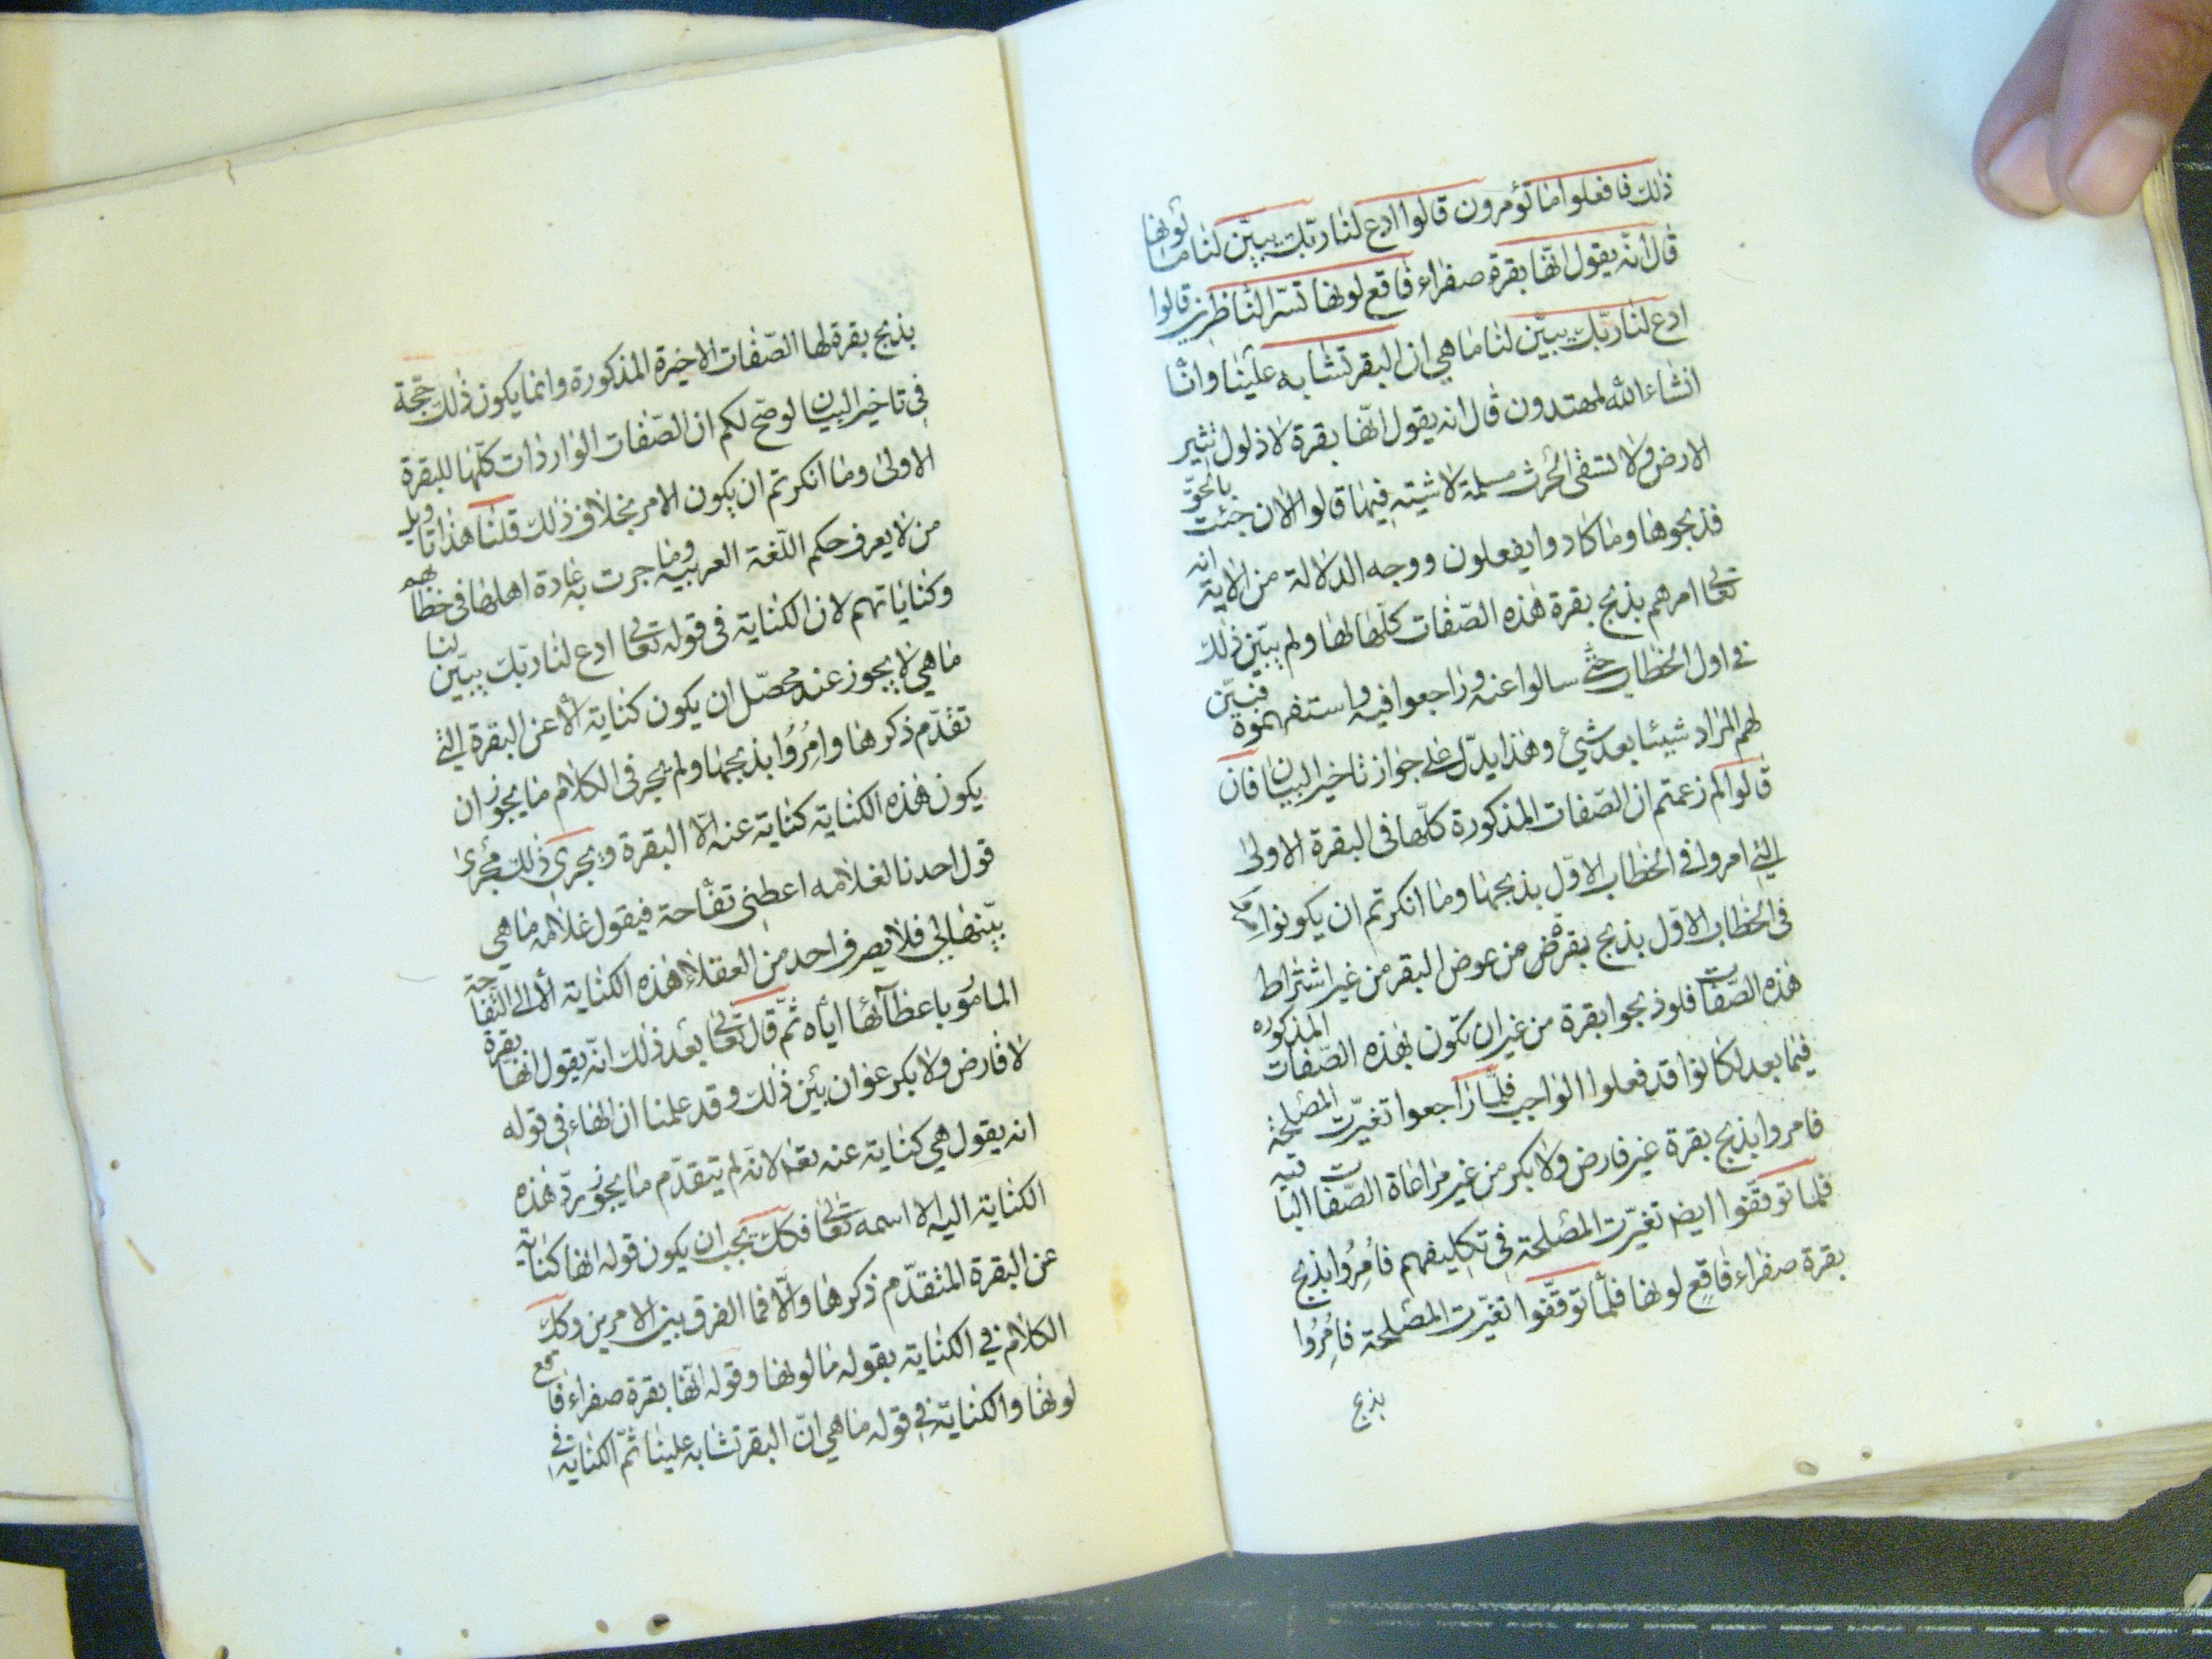 ذلك فافعلوا ما تؤمرون قالوا ادع لنا ربّك يبيّن لنا ما لونها
قال انّه يقول انّها بقرة صفراء فاقع لونها تسرّ الناظرين قالوا
ادع لنا ربّك يبيّن لنا ما هي ان البقر تشابه علينا وانّا
انشاء الله لمهتدون قال انه يقول انّها بقرة لا ذلول تثير
الارض ولا تسقى الحرث مسلمة لا شيته فيها قالوا الان جئت بالحقّ
فذبحوها وما كادوا يفعلون ووجه الدلالة من الاية انه
تعالى امرهم بذبح بقرة هذه الصّفات كلّها لها ولم يبيّن ذلك
في اول الخطاب حتى سالوا عنه وراجعوا فيه واستفهموه فبيّن
لهم المراد شيئا بعد شيئ وهذا يدّل على جواز تاخير البيان فان
قالوا لم زعمتم ان الصّفات المذكورة كلّها فى البقرة الاولى
التي امروا في الخطاب الاوّل بذبحها وما انكرتم ان يكونوا امروا
فى الخطاب الاوّل بذبح بقرة من عرض البقر من غير اشتراط
هذه الصّفات فلو ذبحوا بقرة من غير ان تكون بهذه الصّفات المذكوره
فيما بعد لكانوا قد فعلوا الواجب فلمّا راجعوا تغيّرت المصلحة
فامروا بذبح بقرة غير فارض ولا بكر من غير مراعاة الصّفات الباقيه
فلما توقّفوا ايضا تغيّرت المصلحة في تكليفهم فاُمِرُوا بذبح
بقرة صفراء فاقع لونها فلمّا توقّفوا تغيّرت المصلحة فاُمِرُوا
بذبح
بذبح بقرة لها الصّفات الاخيرة المذكورة وانما يكون ذلك حجّة
في تاخير البيان لو صّح لكم ان الصّفات الواردات كلّها للبقرة
الاولى وما انكرتم ان يكون الامر بخلاف ذلك قلنا هذا تاويل
من لا يعرف حكم اللّغة العربيه وما جرت به عادة اهلها في خطابهم
وكناياتهم لان الكناية فى قوله تعالى ادع لنا ربّك يبيّن لنا
ما هي لا يجوز عند محصّل ان يكون كناية الّا عن البقرة التي
تقدّم ذكرها واُمِرُوا بذبحها ولم يجر فى الكلام ما يجوز ان
يكون هذه الكناية كناية عنه الّا البقرة ويجرى ذلك مجرى
قول احدنا لغلامه اعطنى تفّاحة فيقول غلامه ما هي
بيّنها لي فلا يصرف احد من العقلاء هذه الكناية الّا الى التفاحة
المامور باعطائها ايّاه ثمّ قال تعالى بعد ذلك انّه يقول انها بقرة
لا فارض ولا بكر عوان بين ذلك وقد علمنا ان الهاء في قوله
انه يقول هي كناية عنه تعالى لانّه لم يتقدّم ما يجوز ردّ هذه
الكناية اليه الا اسمه تعالى فكك يجب ان يكون قوله انها كناية
عن البقرة المتقدّم ذكرها والّا فما الفرق بين الامرين وكك
الكلام في الكناية بقوله ما لونها وقوله انّها بقرة صفراء فاقع
لونها والكناية في قوله ما هي انّ البقر تشابه علينا ثمّ الكناية في